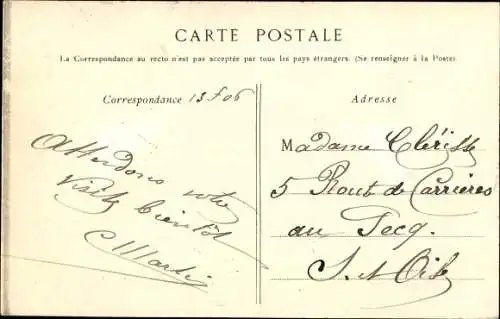 CARTE POSTALE
La Correspondance au recto n'est pas acceptée par tous les pays étrangers. (Se renseigner à la Poste).
Correspondance 13
Adresse
Attendons votre
visite bientôt
C Martin
Madame Clérisse
5 Rout de Carrières
au Pecq.
S. et Oise